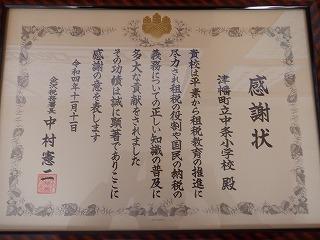 感謝状
津幡町立中条小学校 殿
貴校は平素から租税教育の推進に
尽力され租税の役割や国民の納税の
義務についての正しい知識の普及に
多大な貢献をされました
その功績は誠に顕著でありここに
感謝の意を表します
令和四年十一月十一日
金沢税務署長 中村憲二